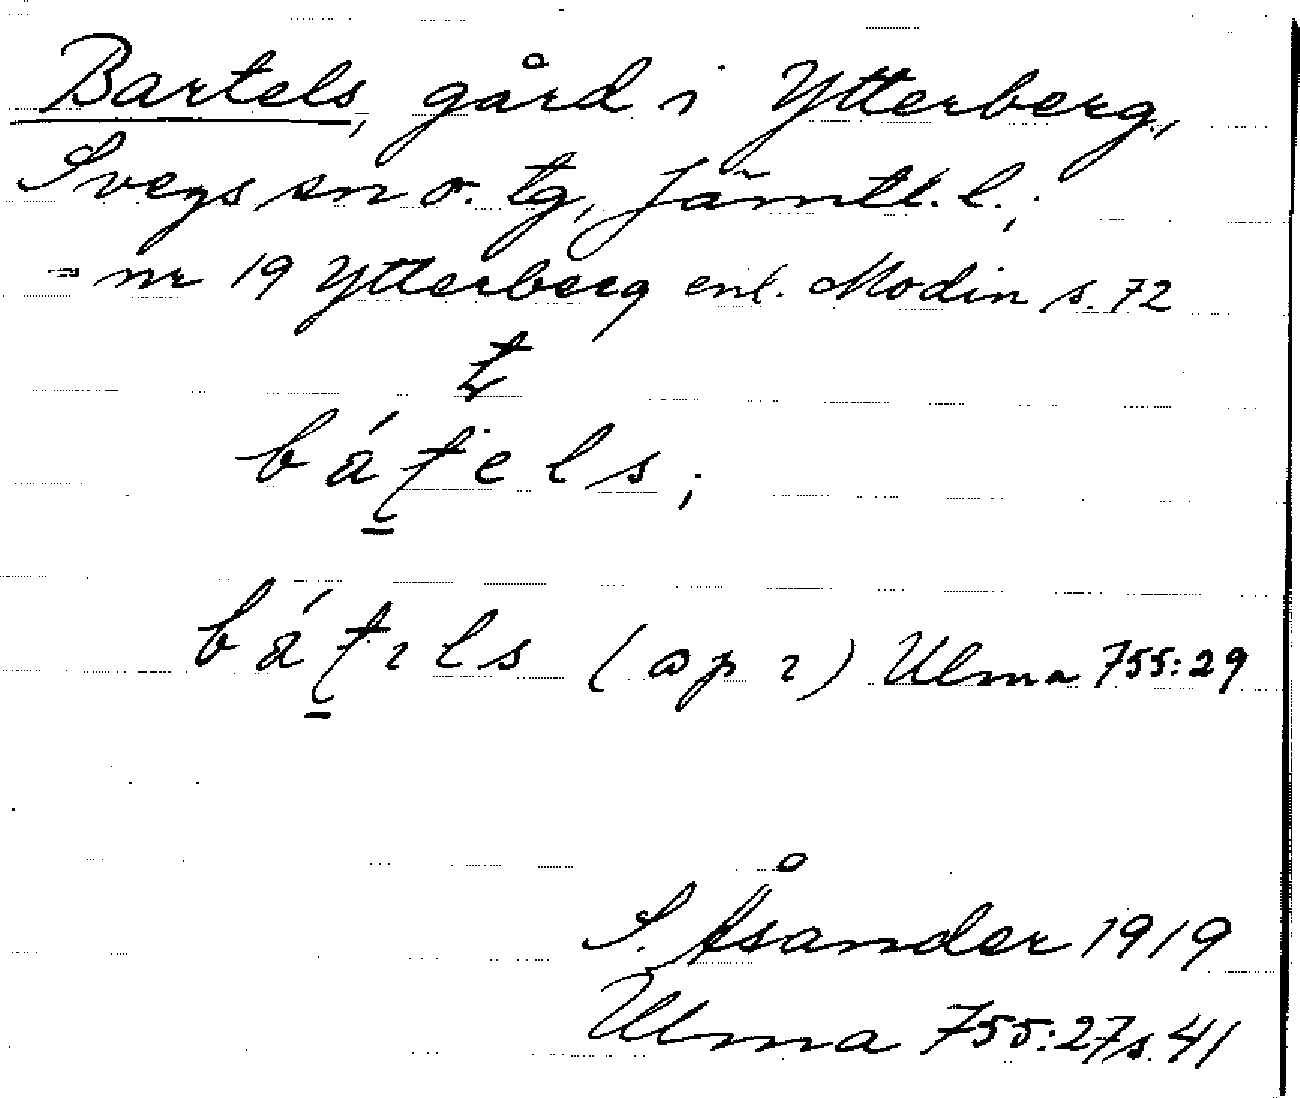 Bartels, gård i Ytterberg,
Svegs sn o. tg, Jämtl. l.;
= nr 19 Ytterberg enl. Modin s. 72
t
bátels;
bátɩls (op ɩ) Ulma 755:29
S. Åsander 1919
Ulma 755:27 s. 41